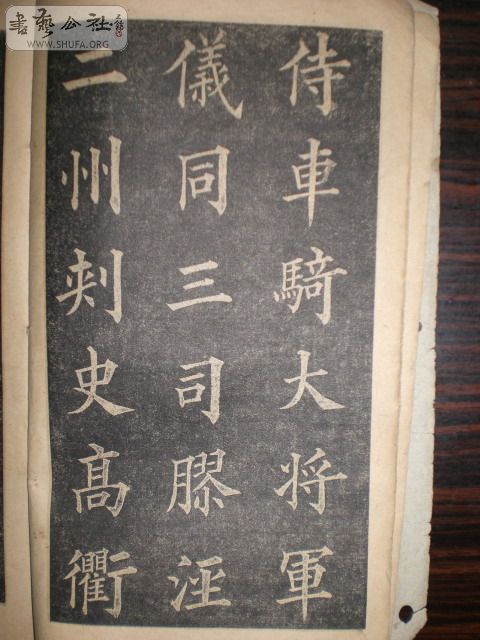 書藝公社
WWW.SHUFA.ORG
侍車騎大将軍
儀同三司膠涇
二州刾史髙衢